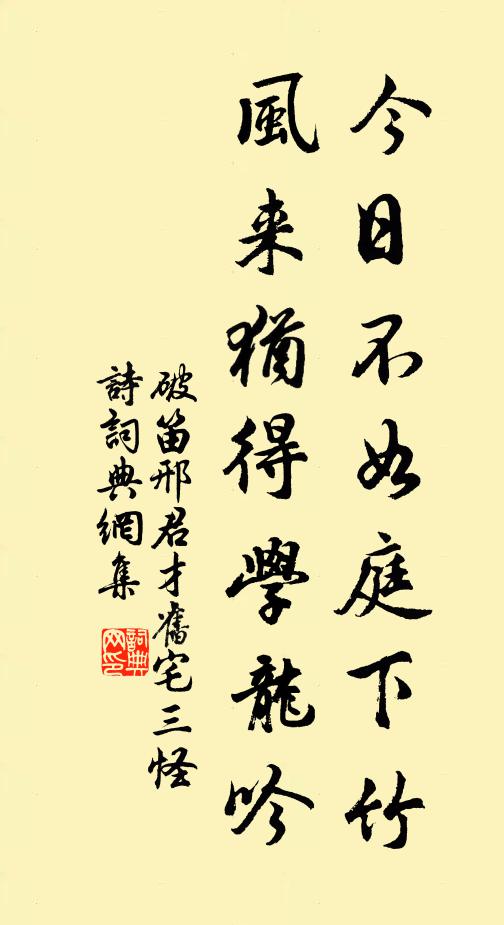 今日不如庭下竹
風来猶得學龍吟
破笛邢君才舊宅三怪
詩詞典網集
詞典
网印